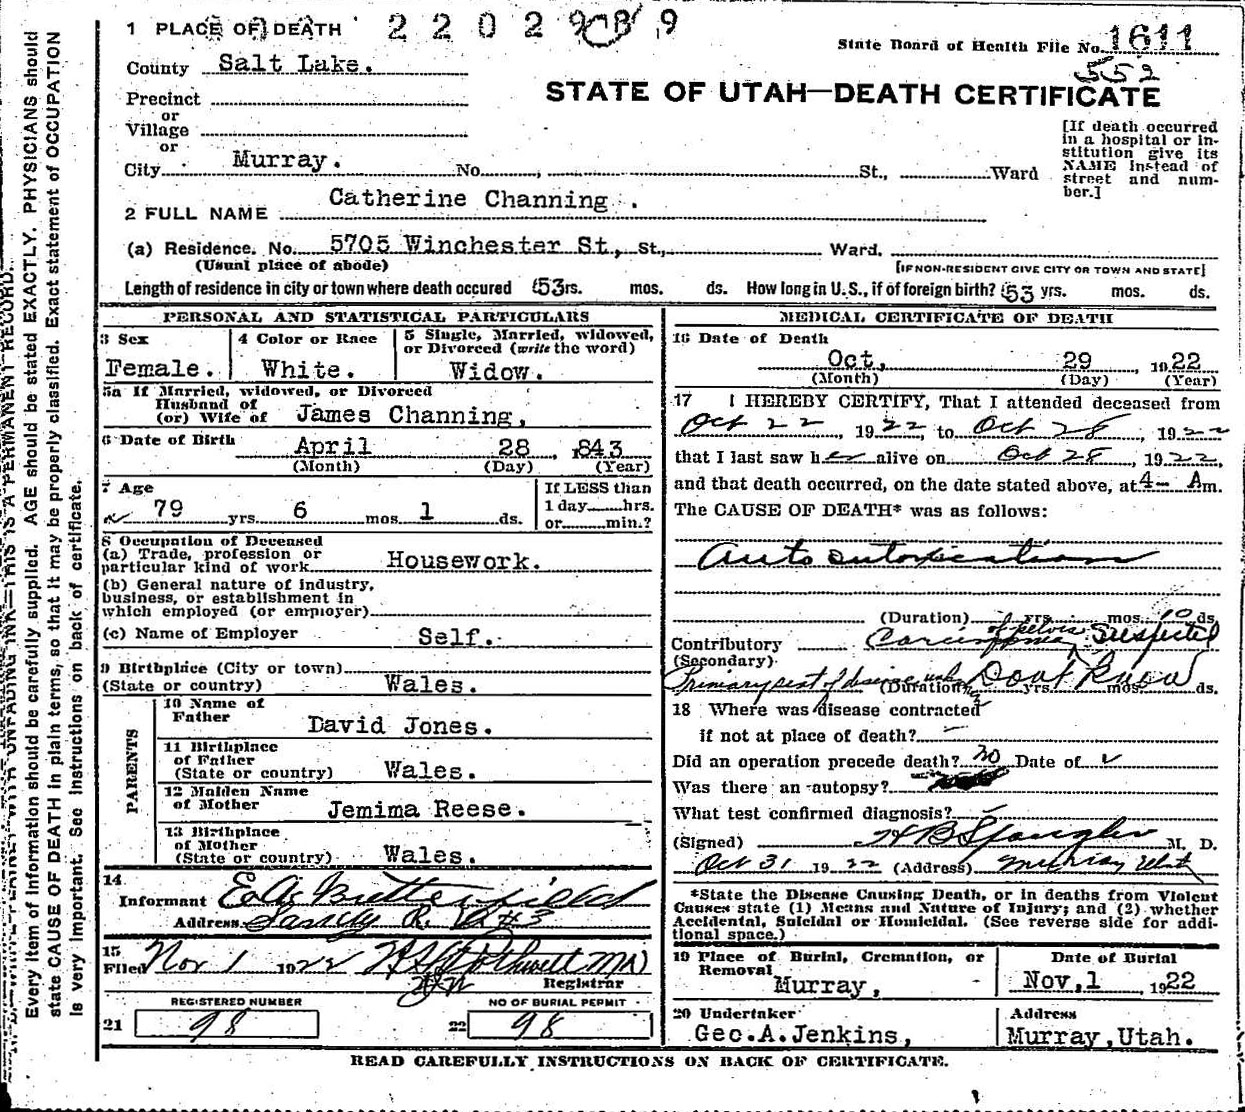 1 PLACE OF DEATH 2 2 0 2 9 9
State Board of Health File No. 1611
552
County Salt Lake.
STATE OF UTAH—DEATH CERTIFICATE
Precinct
or
Village
or
City Murray. No. , St., Ward
[If death occurred
in a hospital or in-
stitution give its
NAME instead of
street and num-
ber.]
2 FULL NAME Catherine Channing .
(a) Residence. No. 5705 Winchester St., St., Ward.
(Usual place of abode) [IF NON-RESIDENT GIVE CITY OR TOWN AND STATE]
Length of residence in city or town where death occured 53rs. mos. ds. How long in U.S., if of foreign birth? 53 yrs. mos. ds.
PERSONAL AND STATISTICAL PARTICULARS
3 Sex
Female.
4 Color or Race
White.
5 Single, Married, widowed,
or Divorced (write the word)
Widow.
5a If Married, widowed, or Divorced
Husband of
(or) Wife of James Channing,
6 Date of Birth April 28 , 1843
(Month) (Day) (Year)
7 Age
79 yrs. 6 mos. 1 ds.
If LESS than
1 day hrs.
or min.?
8 Occupation of Deceased
(a) Trade, profession or
particular kind of work Housework.
(b) General nature of industry,
business, or establishment in
which employed (or employer)
(c) Name of Employer Self.
9 Birthplace (City or town)
(State or country) Wales.
PARENTS
10 Name of
Father David Jones.
11 Birthplace
of Father
(State or country) Wales.
12 Maiden Name
of Mother Jemima Reese.
13 Birthplace
of Mother
(State or country) Wales.
14
Informant Butterfield
Address. Sandy R. #3
15
Filed Nov 1 1922 MD
Registrar
REGISTERED NUMBER
21 98
NO OF BURIAL PERMIT
22 98
MEDICAL CERTIFICATE OF DEATH
16 Date of Death
Oct, 29 1922
(Month) (Day) (Year)
17 I HEREBY CERTIFY, That I attended deceased from
Oct 22 , 1922, to Oct 28 , 1922
that I last saw her alive on Oct 28 , 1922,
and that death occurred, on the date stated above, at 4- Am.
The CAUSE OF DEATH* was as follows:
Auto intoxication
(Duration) yrs. mos. 10 ds.
Contributory Carcinoma of pelvis Suspected
(Secondary)
Primary seat of disease Dont Know
(Duration) yrs. mos. ds.
18 Where was disease contracted
if not at place of death? -
Did an operation precede death? no Date of
Was there an autopsy?
What test confirmed diagnosis?
(Signed) H B Spangler M. D.
Oct 31 1922 (Address) Murray Utah
*State the Disease Causing Death, or in deaths from Violent
Causes state (1) Means and Nature of Injury; and (2) whether
Accidental, Suicidal or Homicidal. (See reverse side for addi-
tional space.)
19 Place of Burial, Cremation, or
Removal
Murray,
Date of Burial
Nov,1 1922
20 Undertaker
Geo.A.Jenkins,
Address
Murray,Utah.
READ CAREFULLY INSTRUCTIONS ON BACK OF CERTIFICATE.
WITH UNFADING INK—THIS IS A PERMANENT RECORD.
Every item of information should be carefully supplied. AGE should be stated EXACTLY. PHYSICIANS should
state CAUSE OF DEATH in plain terms, so that it may be properly classified. Exact statement of OCCUPATION
is very important. See instructions on back of certificate.